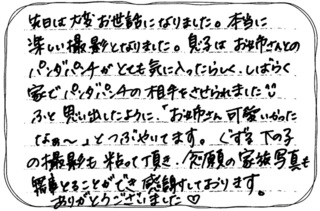 先日は大変お世話になりました。本当に
楽しい撮影となりました。息子はお姉さんとの
パンダパンチがとても気に入ったらしく、しばらく
家でパンダパンチの相手をさせられました
ふと思い出したように、「お姉さん可愛いかった
なぁ〜」とつぶやいてます。ぐずる下の子
の撮影も粘って頂き、念願の家族写真も
無事とることができ感謝しております。
ありがとうございました♡